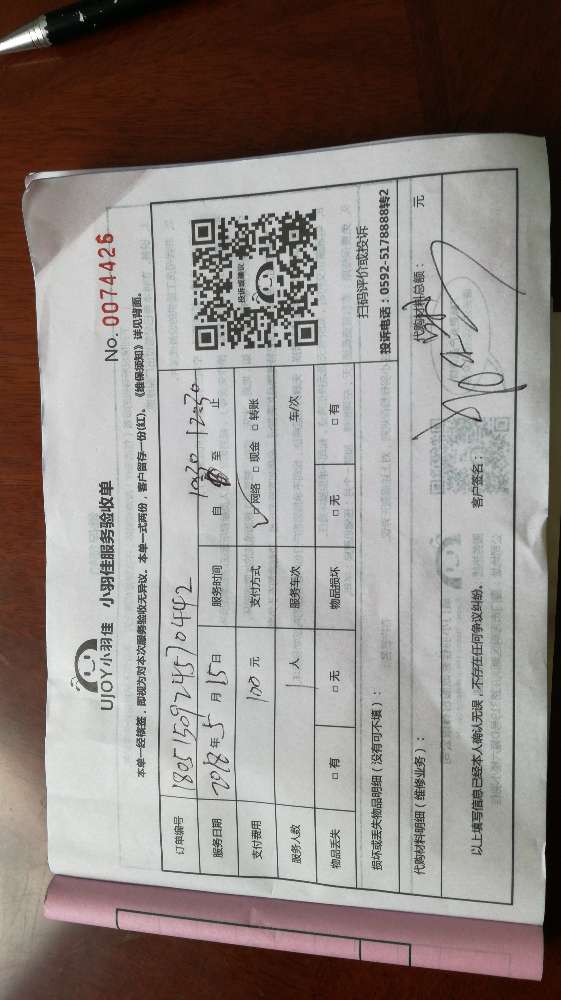 UJOY小羽佳 小羽佳服务验收单
No. 0074426
本单一经核签，即视为对本次服务验收无异议。本单一式两份，客户留存一份(红)。《维保须知》详见背面。
订单编号 1805150924570442
服务日期 2018年5月15日 服务时间 自 10:30 至 12:30 止
支付费用 100元 支付方式 ☑网络 □现金 □转账
服务人数 1人 服务车次 车/次
物品丢失 □有 □无 物品损坏 □无 □有
投诉或建议
扫码评价或投诉
投诉电话：0592-5178888转2
损坏或丢失物品明细（没有可不填）：
代购材料明细（维修业务）： 代购材料总额： 元
以上填写信息已经本人确认无误，不存在任何争议纠纷。 客户签名：